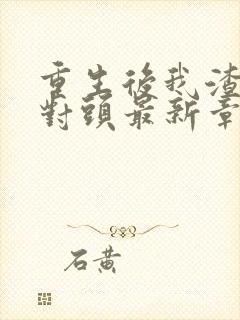 重生後我渣
對頭最新章
石黄